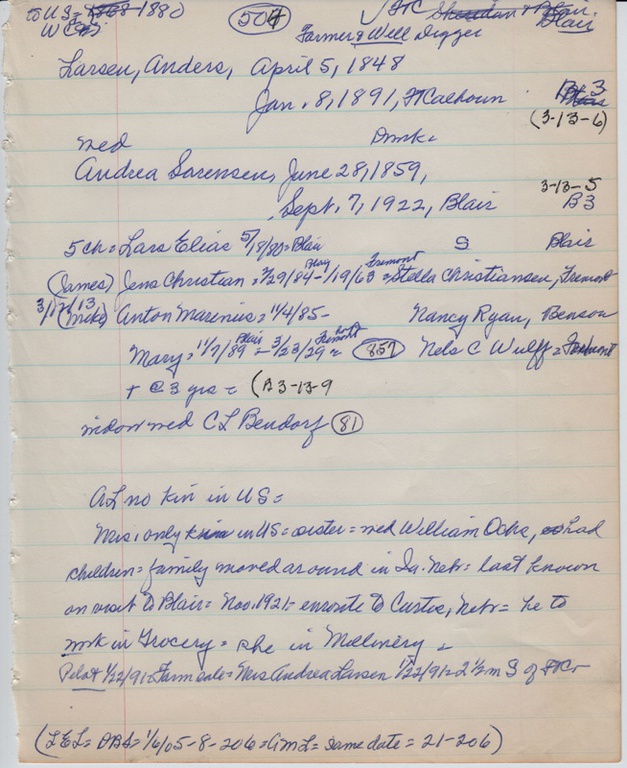 to US = 1880 504 FTC Sheridan + Blair
WC Blair
Farmer & Well Digger
Larsen, Anders, April 5, 1848
Jan. 8, 1891, Ft Calhoun B 3
(3-13-6)
wed Dmk =
Andrea Sorensen, June 28, 1859, 3-13-5
Sept. 7, 1922, Blair B3
5 ch = Lars Elias 5/18/80 = Blair S Blair
(James) Jens Christian = 3/29/84 - 1/19/63 Fremont = Stella Christiansen, Fremont
3/17/13
(Mike) Anton Marinius = 11/4/85 - Nancy Ryan, Benson
Mary = 11/7/89 Blair = 3/23/29 Fremont = 857 Nels C Wulff = Fremont
+ @ 3 yrs = (B3-13-9
widow wed C L Bendorf 81
AL no kin in US =
Mrs, only kin in US = sister = wed William Ochs, had
children = family moved around in Ia. Nebr = last known
on visit to Blair = Nov. 1921 = enroute to Curtis, Nebr = he to
work in Grocery = she in Millinery =
Pilot 1/22/91 = Farm sale = Mrs Andrea Larsen 1/22/91 = 2 1/2 m S of FtC -
(LEL = DB4 = 1/6/05-8-206 = AML = same date = 21-206)